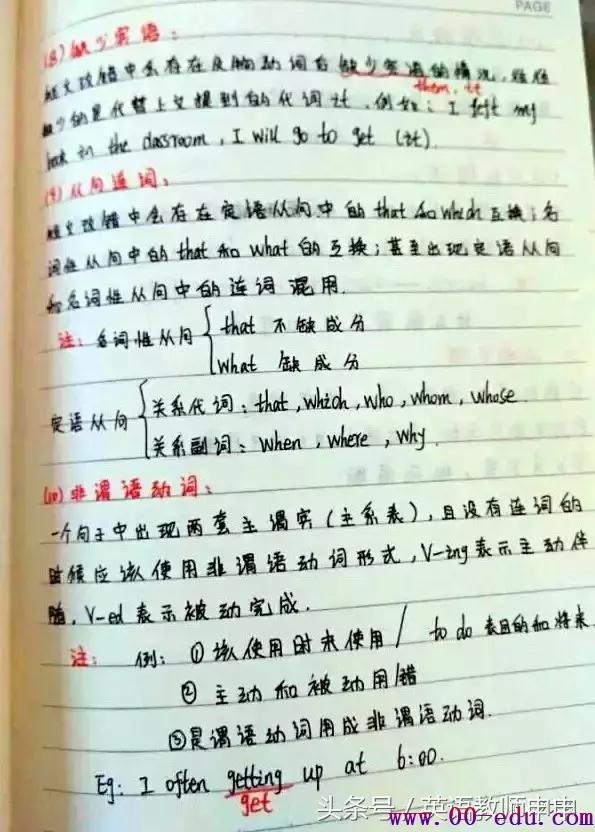 PAGE
(8) 缺少宾语：
短文改错中会存在及物动词后缺少宾语的情况，往往
them, it
缺少的是代替上文提到的代词it. 例如：I left my
book in the classroom, I will go to get (it).
(9) 从句连词：
短文改错中会存在定语从句中的that和which互换；名
词性从句中的that和what的互换；甚至出现定语从句
和名词性从句中的连词混用.
注：名词性从句 { that 不缺成分
what 缺成分
定语从句 { 关系代词：that, which, who, whom, whose.
关系副词：when, where, why.
(10) 非谓语动词：
一个句子中出现两套主谓宾(主系表)，且没有连词的
时候应该使用非谓语动词形式，V-ing表示主动伴
随，V-ed表示被动完成.
注：例：①该使用时未使用 / to do 表目的和将来
②主动和被动用错
③是谓语动词用成非谓语动词.
Eg: I often getting up at 6:00.
get
头条号 / 英语教师冉冉
www.00-edu.com